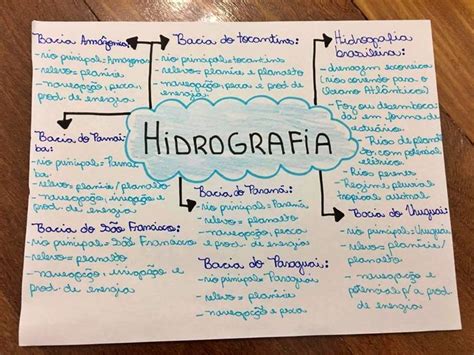 Bacia Amazônica:
- rio principal= Amazonas
- relevo= planície
- navegação, pesca,
prod. de energia
Bacia do Tocantins:
- rio principal= tocantins
- relevo= planície e planalto
- navegação, pesca e prod. de
energia
Hidrografia
brasileira:
- drenagem exorréica
(rios correndo para o
Oceano Atlântico)
- Foz ou desemboca
da em forma de
estuário.
- Rios de planal
to, com potencial
elétrico.
- Rios perenes
- Regime pluvial
tropical austral
HIDROGRAFIA
Bacia do Parnaí
ba:
- rio principal= Parnaí
ba
- relevo= planície/planalto
- navegação, irrigação, prod.
de energia
Bacia do São Francisco:
- rio principal= São Francisco
- relevo= planalto
- navegação, irrigação e
prod. de energia
Bacia do Paraná:
- rio principal= Paraná
- relevo= planalto
- navegação, pesca
e prod. de energia
Bacia do Paraguai:
- rio principal= Paraguai
- relevo= planície
- navegação e pesca
Bacia do Uruguai:
- rio principal= Uruguai
- relevo= planície/
planalto
- navegação e
potencial p/ a
prod. de energia